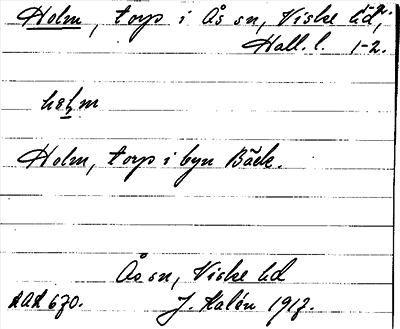 Holm, torp i Ås sn, Viske hd,
Hall. l. 1-2.
holm
Holm, torp i byn Bäck.
Ås sn, Viske hd
J. Kalén 1917.